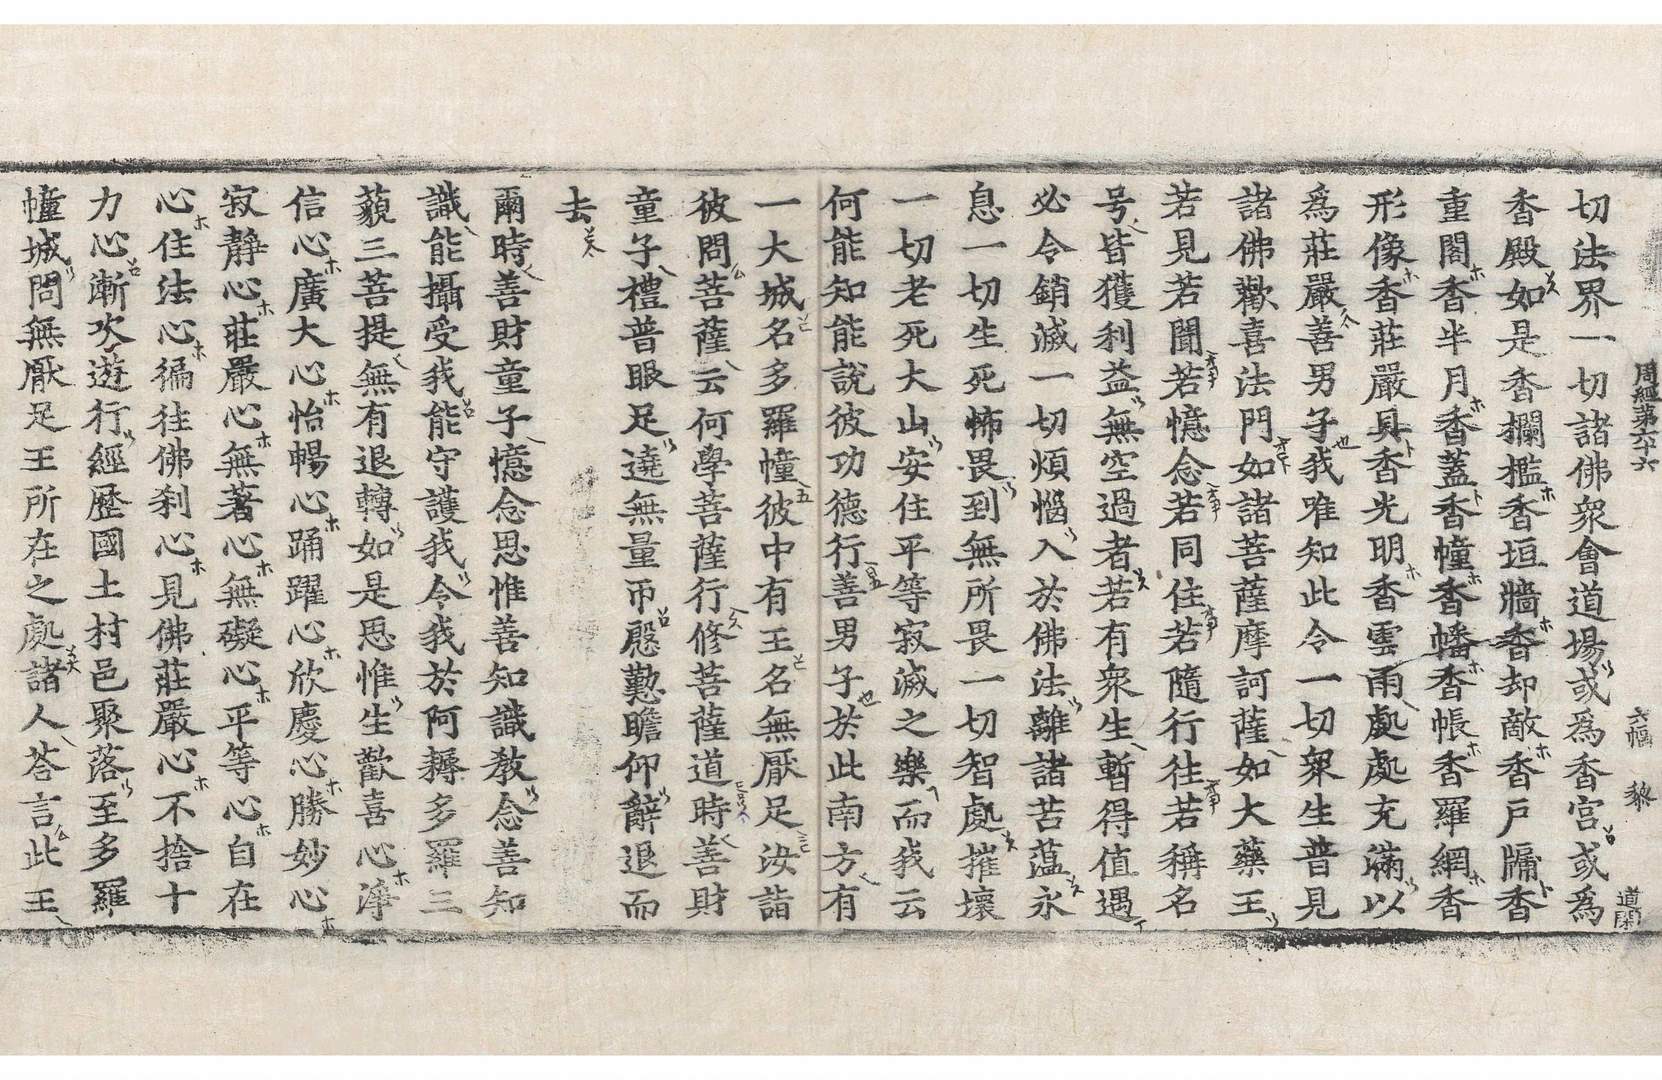 周經第六十六 六幅 黎 道閑
切法界一切諸佛衆會道場或爲香宮或爲
香殿如是香欄檻香垣牆香却敵香戶牖香
重閣香半月香蓋香幢香幡香帳香羅網香
形像香莊嚴具香光明香雲雨處處充滿以
爲莊嚴善男子我唯知此令一切衆生普見
諸佛歡喜法門如諸菩薩摩訶薩如大藥王
若見若聞若憶念若同住若隨行往若稱名
号皆獲利益無空過者若有衆生暫得值遇
必令銷滅一切煩惱入於佛法離諸苦蘊永
息一切生死怖畏到無所畏一切智處摧壞
一切老死大山安住平等寂滅之樂而我云
何能知能說彼功德行善男子於此南方有
一大城名多羅幢彼中有王名無厭足汝詣
彼問菩薩云何學菩薩行修菩薩道時善財
童子禮普眼足遶無量帀慇懃瞻仰辭退而
去
爾時善財童子憶念思惟善知識教念善知
識能攝受我能守護我令我於阿耨多羅三
藐三菩提無有退轉如是思惟生歡喜心淨
信心廣大心怡暢心踊躍心欣慶心勝妙心
寂靜心莊嚴心無著心無礙心平等心自在
心住法心徧往佛刹心見佛莊嚴心不捨十
力心漸次遊行經歷國土村邑聚落至多羅
幢城問無厭足王所在之處諸人荅言此王